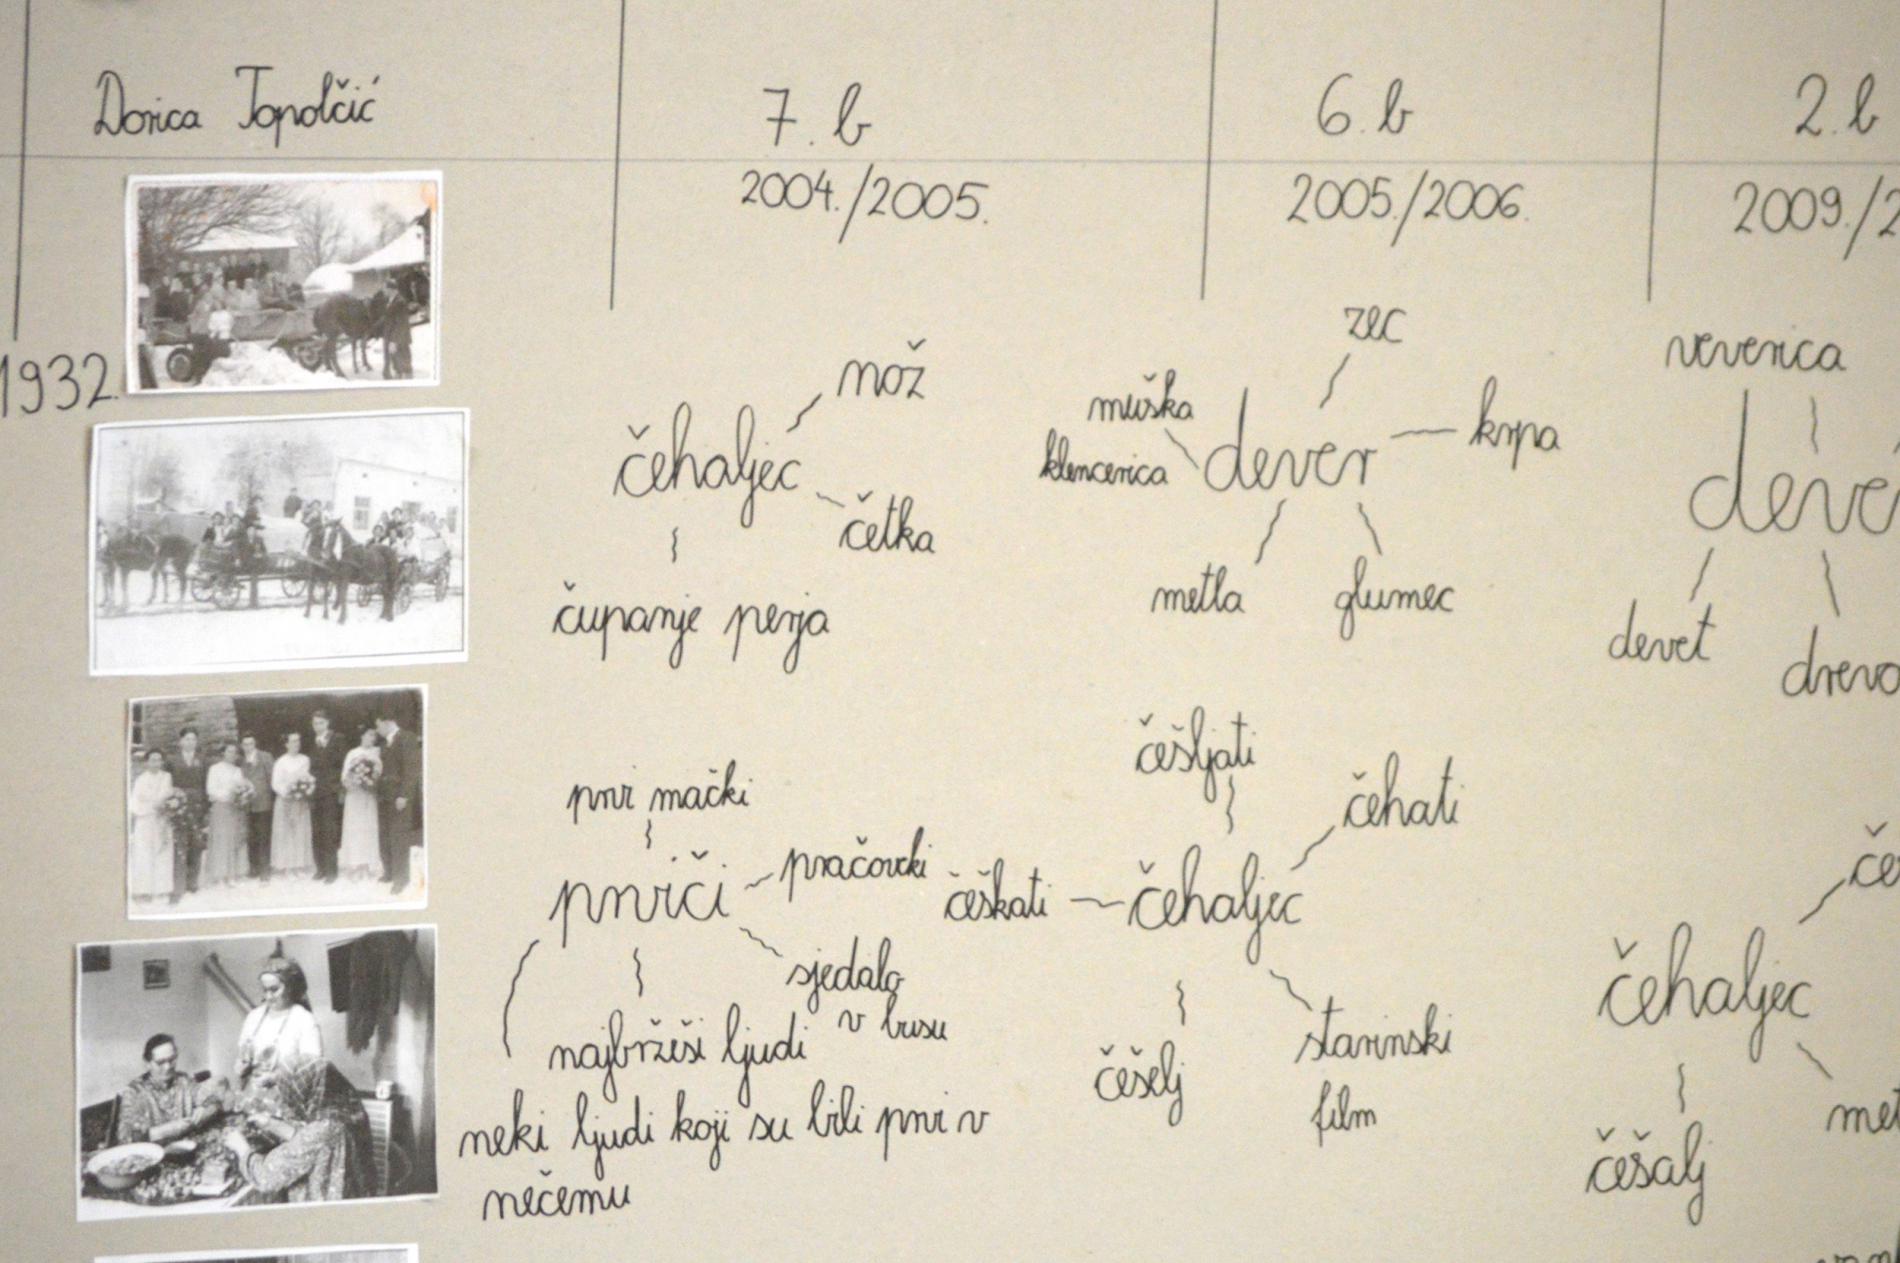 Dorica Topolčić
7. b
6. b
2. b
2004./2005.
2005./2006.
2009./2
1932.
nož
čehaljec
četka
čupanje perja
prvi mački
prviči
pračovcki
sjedalo
v busu
najbržiši ljudi
neki ljudi koji su bili prvi v
nečemu
zec
muška
klencerica
dever
krpa
metla
glumec
češljati
čehati
češkati
čehaljec
češelj
starinski
film
veverica
deve
devet
drevo
če
čehaljec
met
češalj